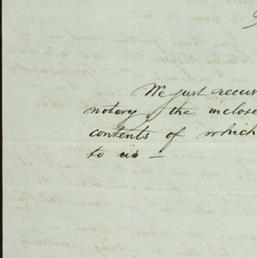 We just receiv
notary, the inclose
contents of which
to us —